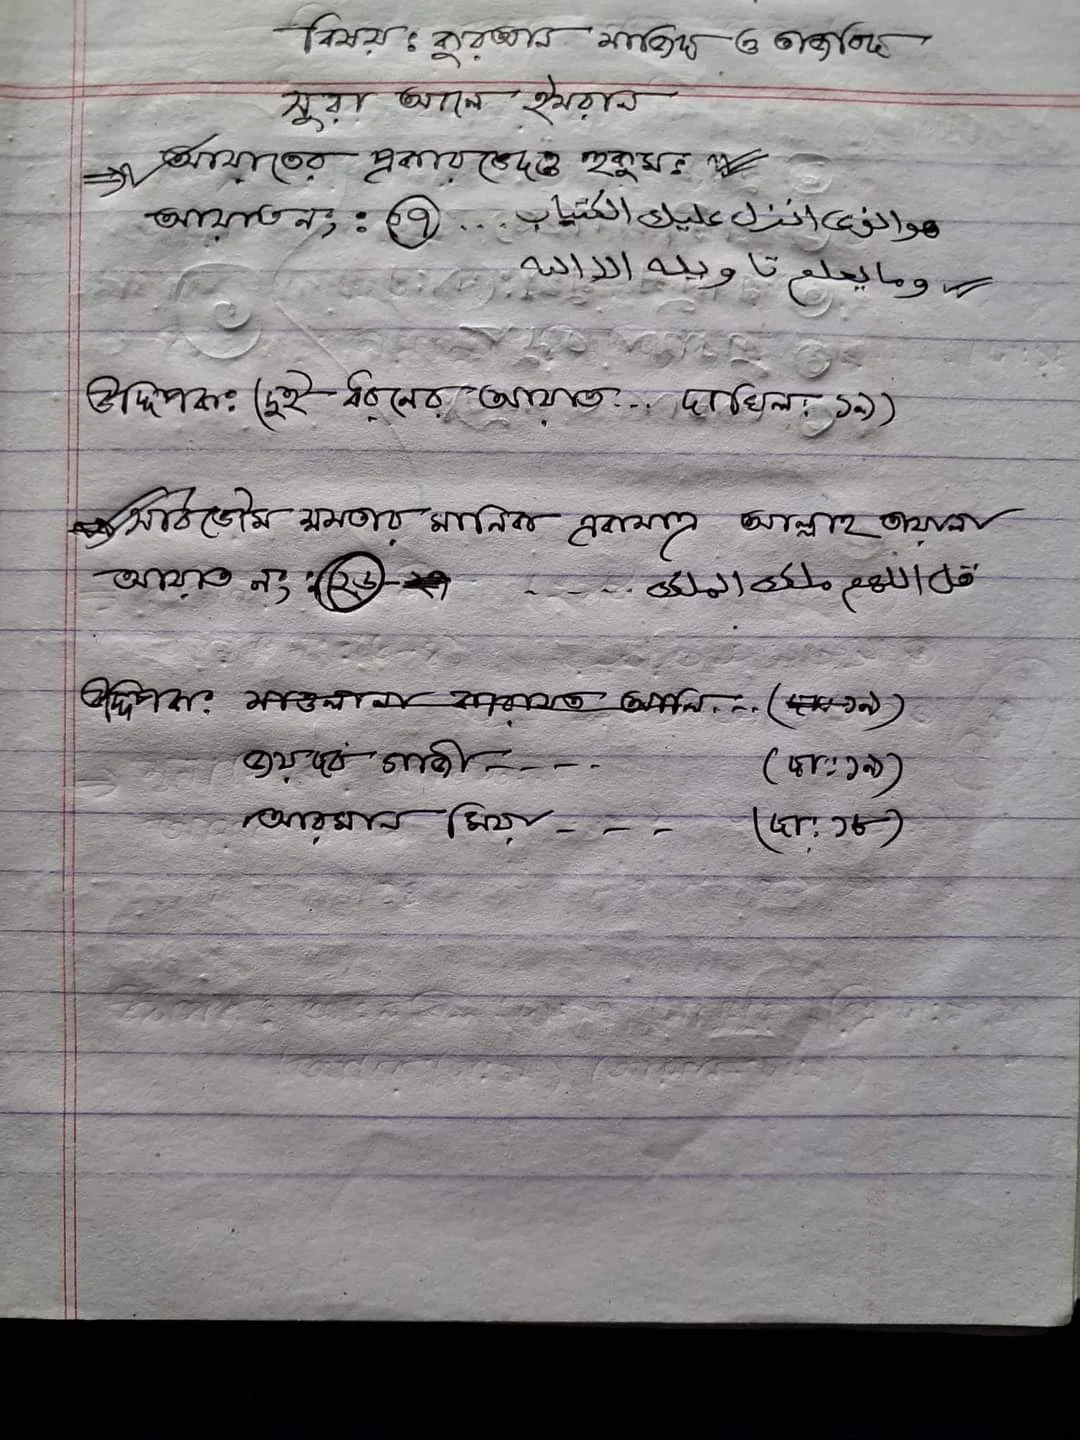 বিষয়: কুরআন মাজিদ ও তাজভিদ
সুরা আলে ইমরান
⇒ আয়াতের প্রকারভেদ হুকুম:
আয়াত নং: ০৭ ... هوالذى انزل عليك الكتاب
وما يعلم تا ويله الا الله
উদ্দিপক: (দুই ধরনের আয়াত... দাখিল: ১৯)
সার্বভৌম ক্ষমতার মালিক একমাত্র আল্লাহ তায়ালা
আয়াত নং: ২৬-২৭ .... قل اللهم ملك الملك
উদ্দিপক: মাওলানা কারামত আলি... (দাঃ ১৯)
গাজী ----- (দা:১৯)
আরমান মিয়া ---- (দা: ১৮)